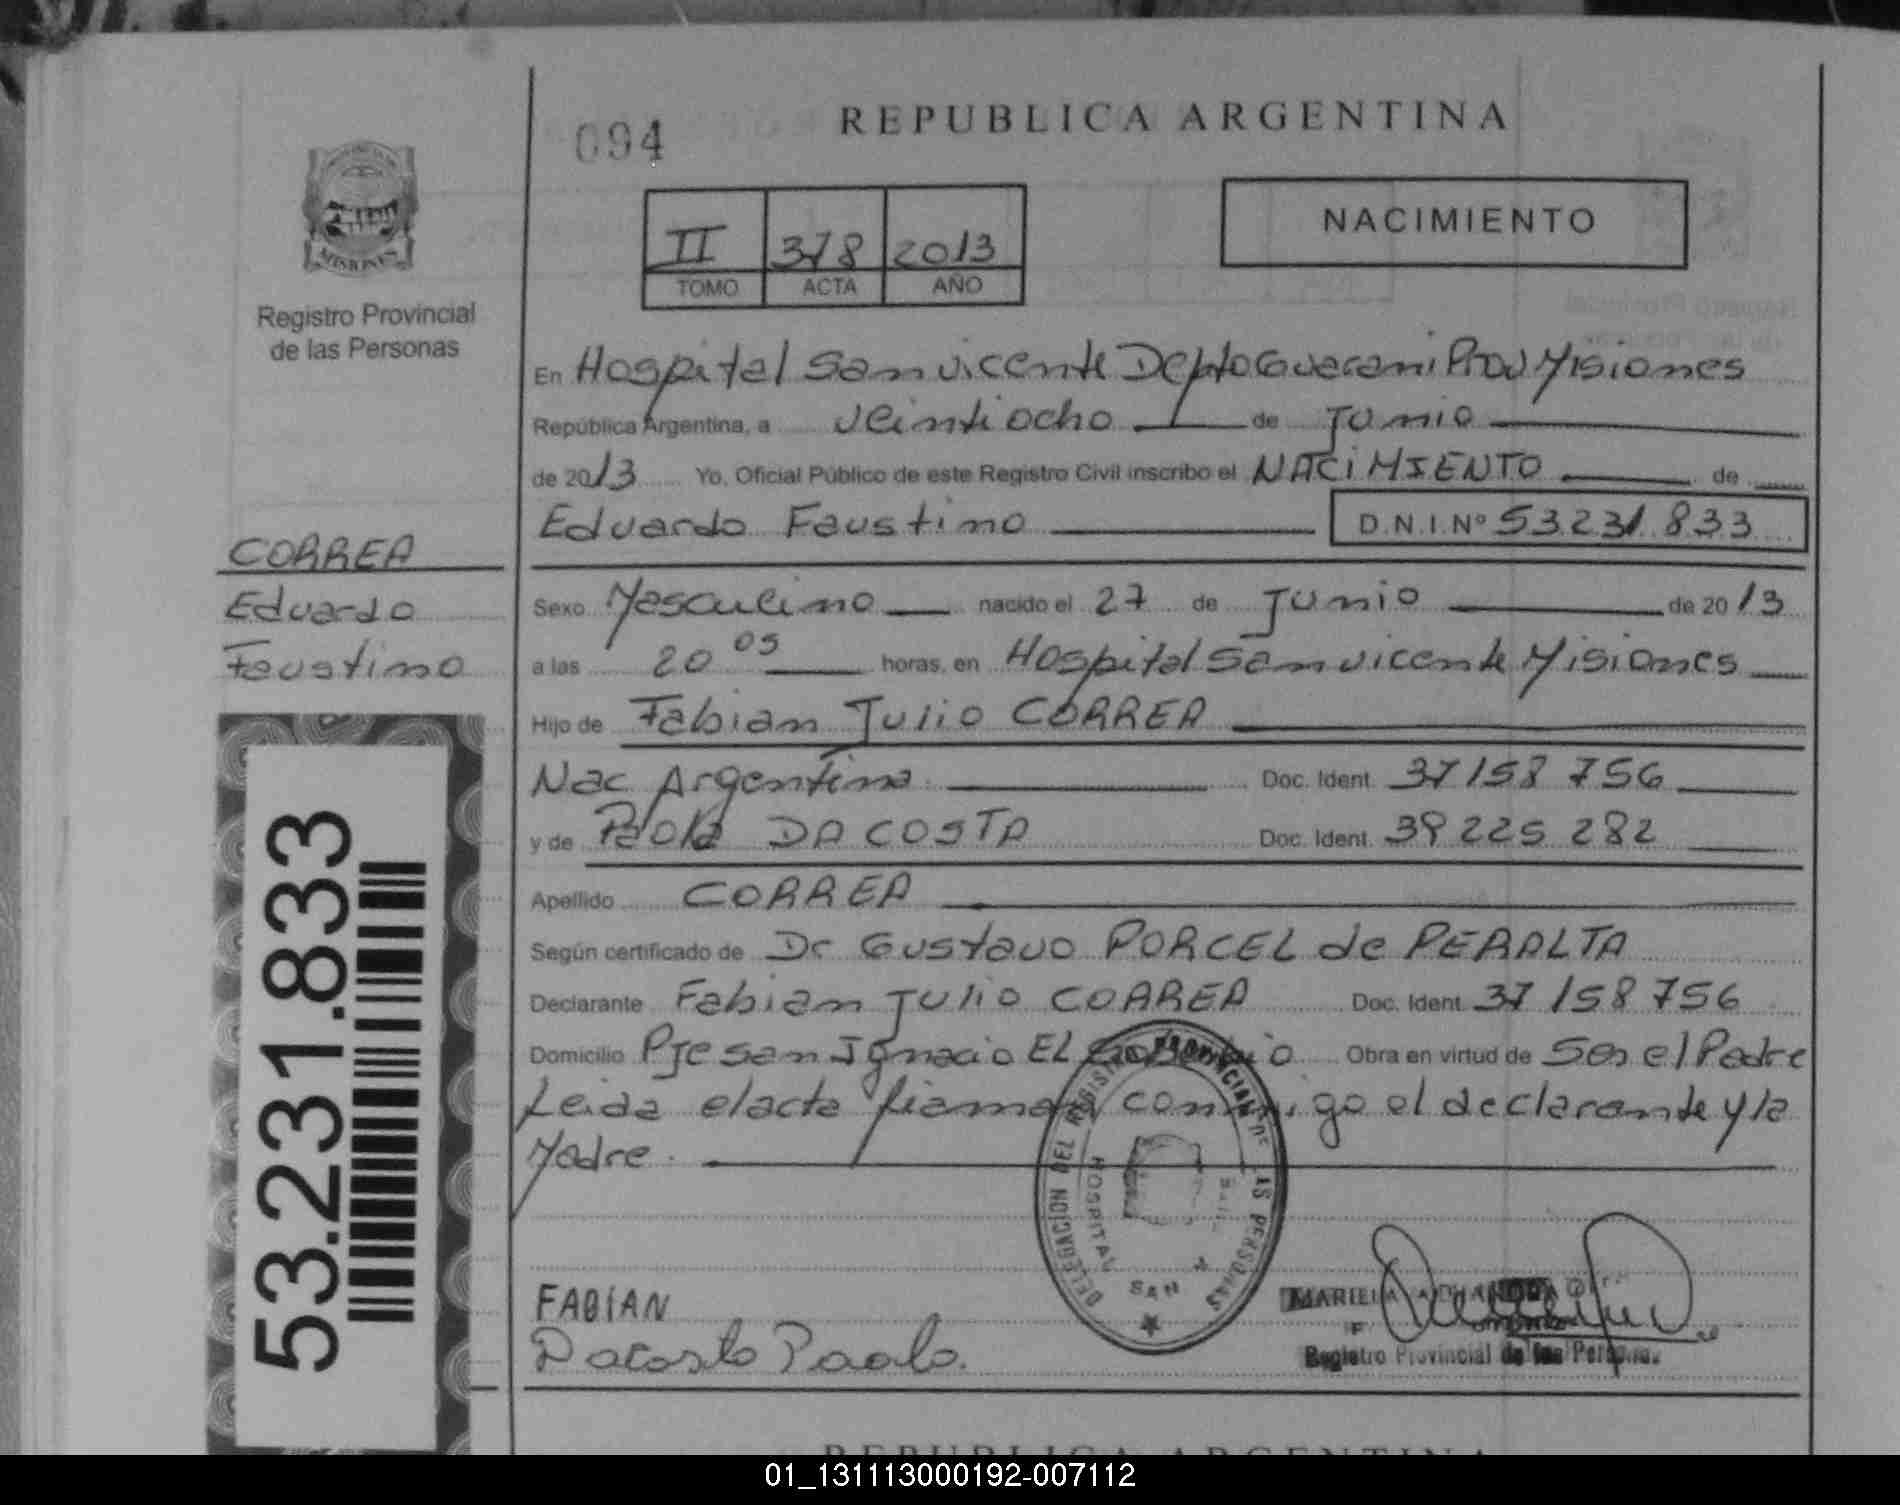 REPUBLICA ARGENTINA
094
NACIMIENTO
II 378 2013
TOMO ACTA AÑO
MISIONES
Registro Provincial
de las Personas
En Hospital San vicente Depto Guarani Prov Misiones
República Argentina, a veintiocho de Junio
de 2013 Yo, Oficial Público de este Registro Civil inscribo el NACIMIENTO de
Eduardo Faustino D.N.I.Nº 53.231.833
CORREA
Eduardo
Faustino
Sexo Masculino nacido el 27 de Junio de 2013
a las 20 05 horas, en Hospital San vicente Misiones
Hijo de Fabian Julio CORREA
Nac Argentina Doc. Ident. 37 158 756
y de Paola DA COSTA Doc. Ident. 39 225 282
Apellido CORREA
Según certificado de Dr Gustavo PORCEL de PERALTA
Declarante Fabian Julio CORREA Doc. Ident. 37 158 756
Domicilio Pje San Ignacio EL Obra en virtud de Ser el Padre
Leida el acta firman conmigo el declarante y la
Madre.
53.231.833
DELEGACION DEL REGISTRO PROVINCIAL DE LAS PERSONAS
HOSPITAL SAN
FABIAN
Dacosta Paola.
MARIELA
Registro Provincial de las Personas
01_131113000192-007112